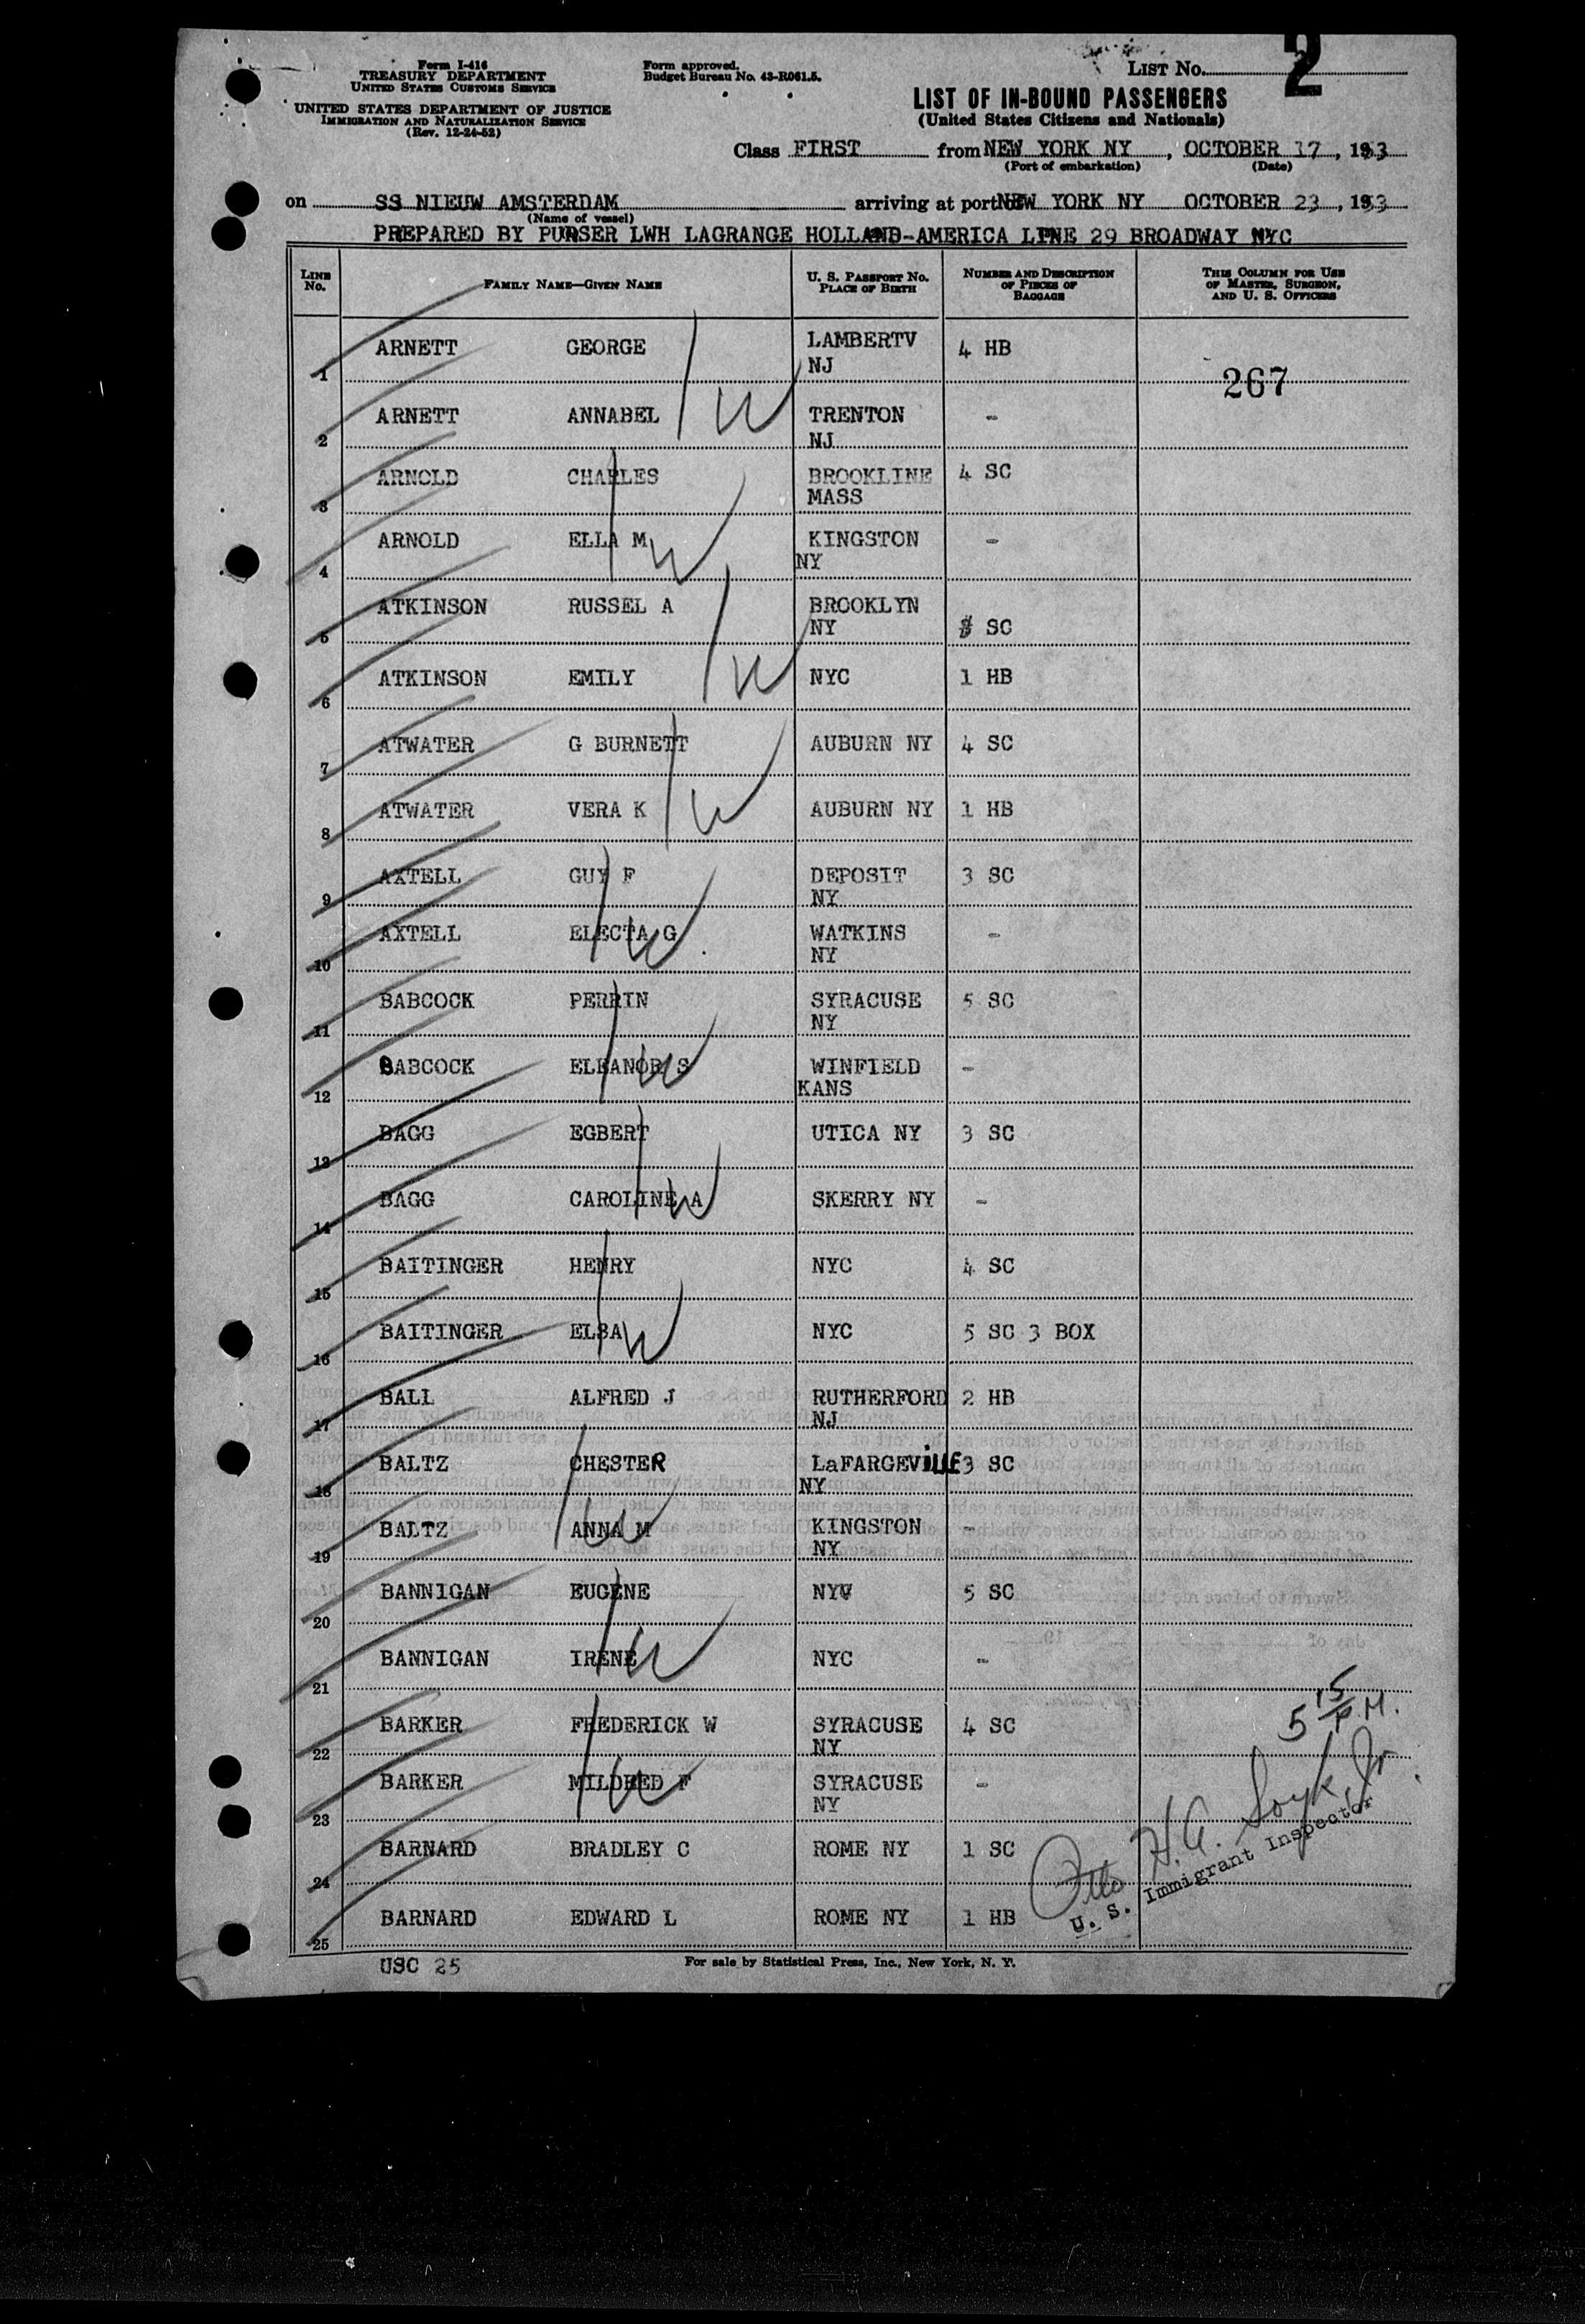 2
Form I-416
TREASURY DEPARTMENT
UNITED STATES CUSTOMS SERVICE
UNITED STATES DEPARTMENT OF JUSTICE
IMMIGRATION AND NATURALIZATION SERVICE
(Rev. 12-24-52)
Form approved.
Budget Bureau No. 43-R061.5.
LIST No.
LIST OF IN-BOUND PASSENGERS
(United States Citizens and Nationals)
Class FIRST from NEW YORK NY, OCTOBER 17, 1953
(Port of embarkation) (Date)
on SS NIEUW AMSTERDAM arriving at port of NEW YORK NY OCTOBER 23, 1953
(Name of vessel)
PREPARED BY PURSER LWH LAGRANGE HOLLAND-AMERICA LINE 29 BROADWAY NYC
LINE No. FAMILY NAME—GIVEN NAME U. S. PASSPORT No. PLACE OF BIRTH NUMBER AND DESCRIPTION OF PIECES OF BAGGAGE THIS COLUMN FOR USE OF MASTER, SURGEON, AND U. S. OFFICERS
1 ARNETT GEORGE LAMBERTV NJ 4 HB
267
2 ARNETT ANNABEL TRENTON NJ -
W
3 ARNOLD CHARLES BROOKLINE MASS 4 SC
4 ARNOLD ELLA M KINGSTON NY -
W
5 ATKINSON RUSSEL A BROOKLYN NY SC
6 ATKINSON EMILY NYC 1 HB
W
7 ATWATER G BURNETT AUBURN NY 4 SC
8 ATWATER VERA K AUBURN NY 1 HB
W
9 AXTELL GUY F DEPOSIT NY 3 SC
10 AXTELL ELECTA G WATKINS NY -
W
11 BABCOCK PERRIN SYRACUSE NY 5 SC
12 BABCOCK ELEANOR S WINFIELD KANS -
W
13 BAGG EGBERT UTICA NY 3 SC
14 BAGG CAROLINE A SKERRY NY -
W
15 BAITINGER HENRY NYC 4 SC
16 BAITINGER ELSA NYC 5 SC 3 BOX
W
17 BALL ALFRED J RUTHERFORD NJ 2 HB
18 BALTZ CHESTER LaFARGEViLLE NY 3 SC
19 BALTZ ANNA M KINGSTON NY -
W
20 BANNIGAN EUGENE NYC 5 SC
21 BANNIGAN IRENE NYC -
W
22 BARKER FREDERICK W SYRACUSE NY 4 SC
5 15 P.M.
23 BARKER MILDRED F SYRACUSE NY -
W
24 BARNARD BRADLEY C ROME NY 1 SC
Otto H.A.
U. S. Immigrant Inspector
25 BARNARD EDWARD L ROME NY 1 HB
USC 25
For sale by Statistical Press, Inc., New York, N. Y.